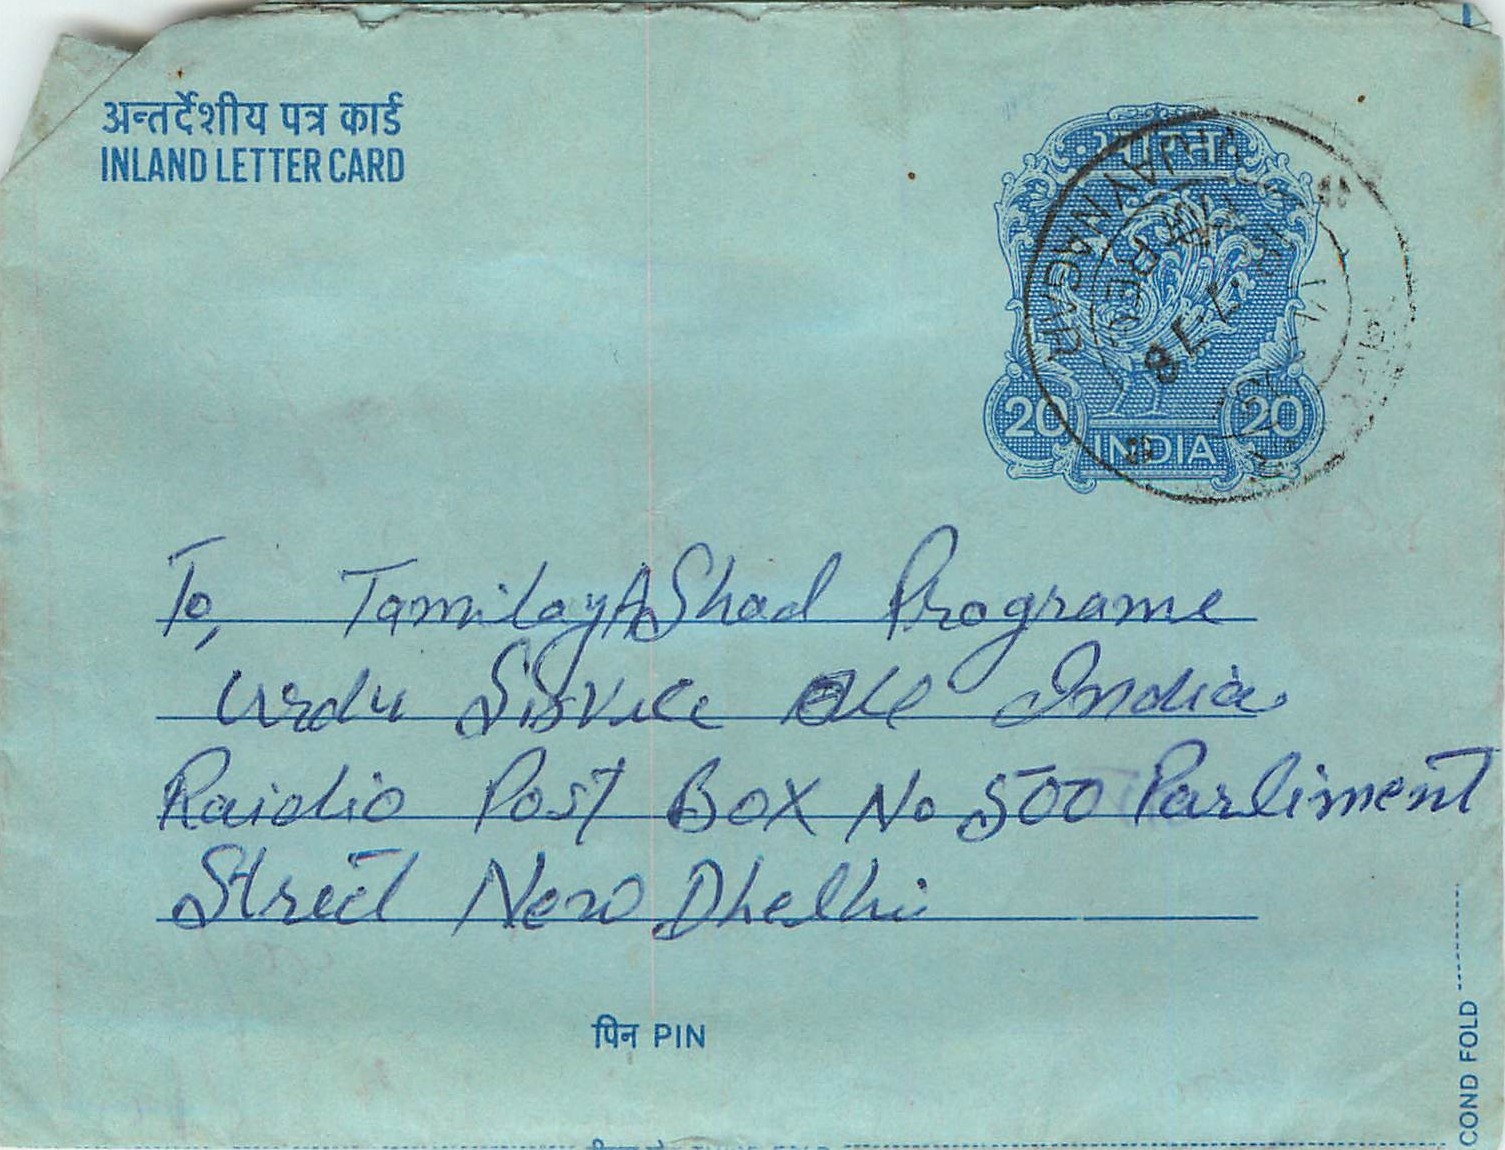 अन्तर्देशीय पत्र कार्ड
INLAND LETTER CARD
भारत
VIJAY NAGAR
20 20
INDIA
To, TamilayAShad Programe
Urdu Sisvice All India
Raidio Post Box No 500 Parliment
Street New Dhelhi
पिन PIN
COND FOLD